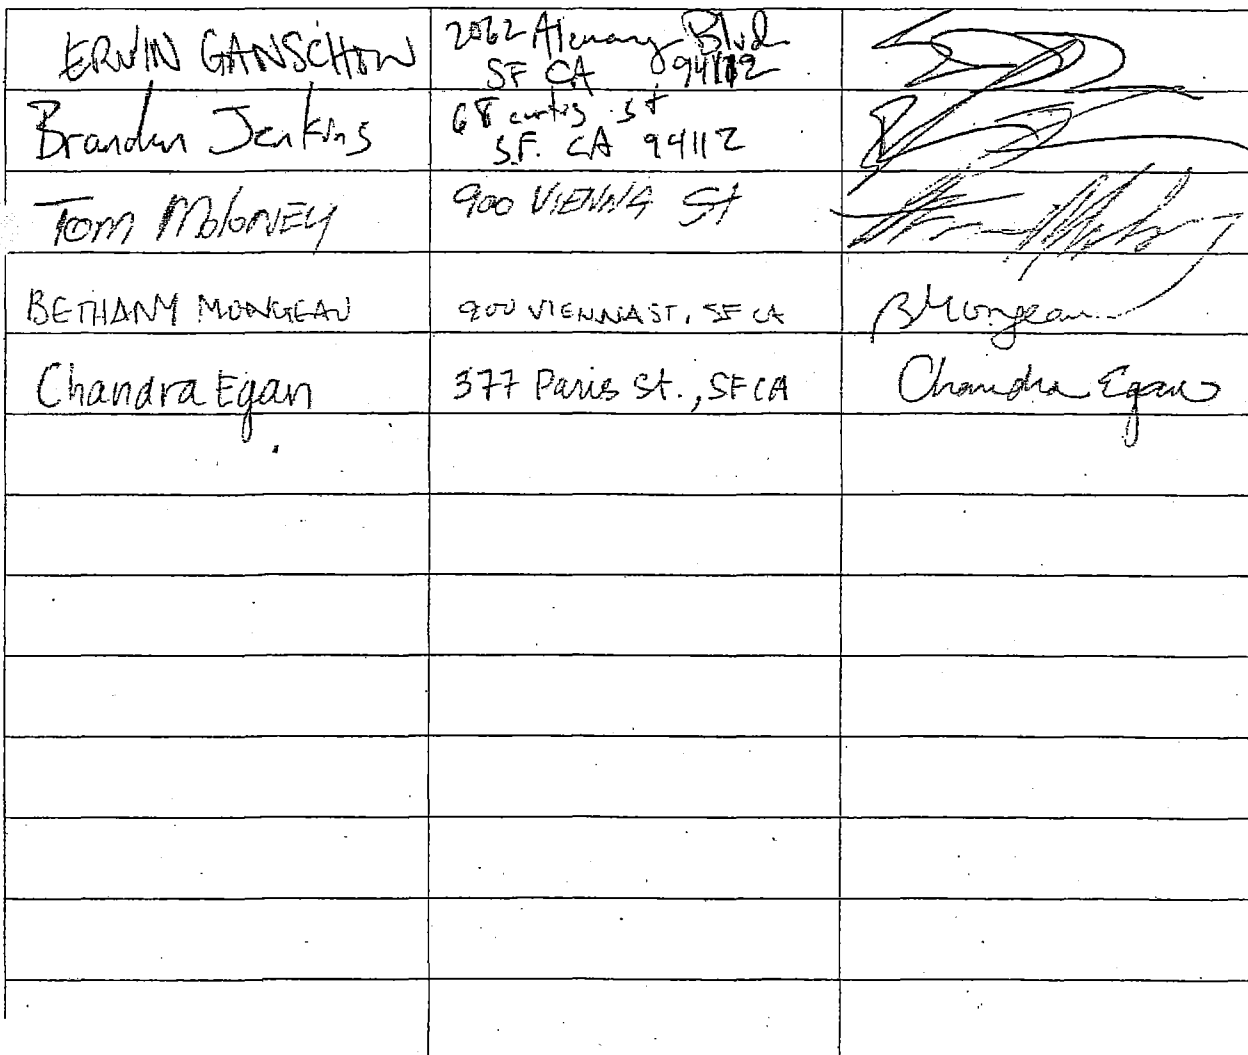 ERWIN GANSCHOW
2062 Alemany Blvd
SF CA 94112
Brandon Jenkins
68 curtis st
S.F. CA 94112
TOM MOLONEY
900 VIENNA St
BETHANY MONGEAU
900 VIENNA ST, SF CA
BMongeau
Chandra Egan
377 Paris St., SF CA
Chandra Egan